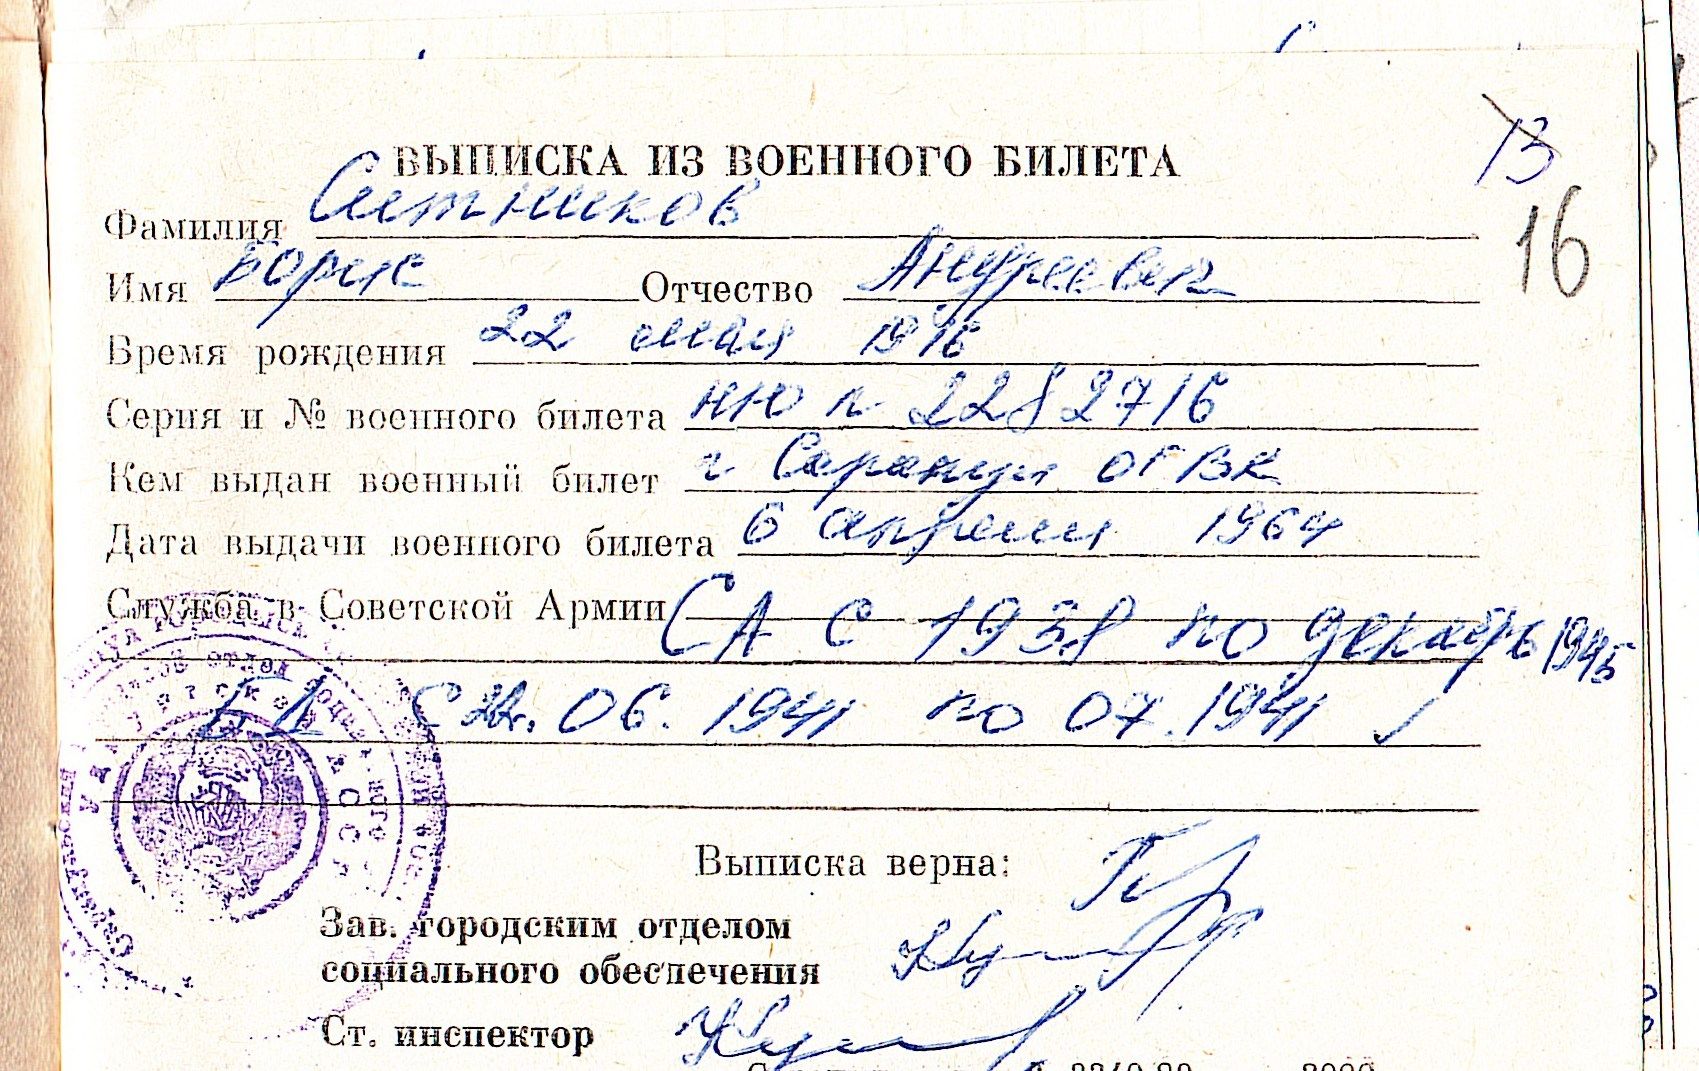 13
ВЫПИСКА ИЗ ВОЕННОГО БИЛЕТА
16
Фамилия Ситников
Имя Борис Отчество Андреевич
Время рождения 22 мая 1916
Серия и № военного билета НЮ № 2282716
Кем выдан военный билет г Сарапул ОГВК
Дата выдачи военного билета 6 апреля 1964
Служба в Советской Армии СА с 1938 по декабрь 1945
с 06. 1941 по 07.1941
Выписка верна:
Зав. городским отделом
социального обеспечения
Ст. инспектор